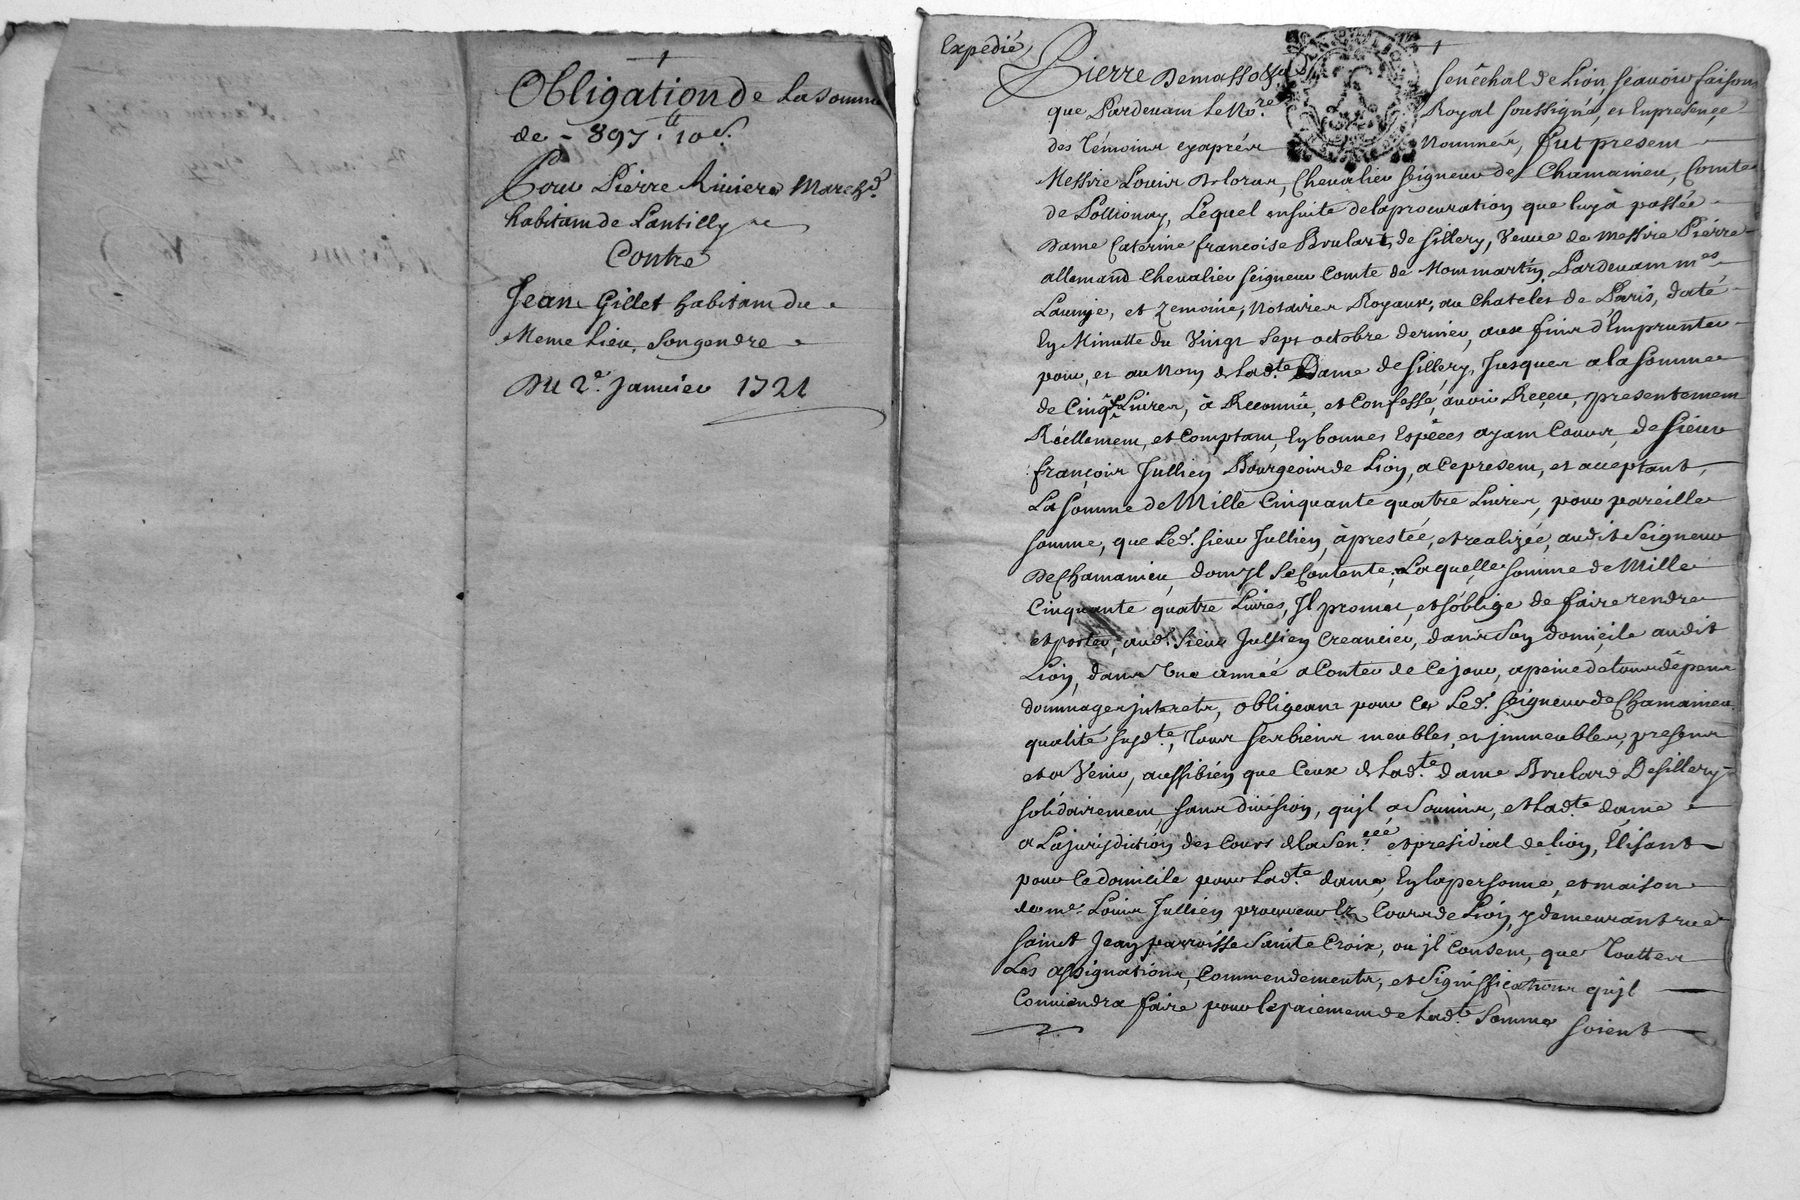 Obligation de La somme
de - 897.tt 10s.
Pour Pierre Riviere Marchd.
habitant de Lentilly
Contre
Jean Gillet habitant du
Meme Lieu, Son gendre
Du 2e. Janvier 1721
Expedié
Pierre Demasso Senéchal de Lion Scavoir faisons
que Pardevant Le Nore. Royal soussigné, et En presence
des Témoins cy aprés Nommés, fut present
Messire Louis Chevalier Seigneur de Chamanieu, Comte
de Pollionay, Lequel ensuite de la procuration que luy à passée
Dame Caterine francoise Brulart de Sillery, Veuve de Messire Pierre
allemand Chevalier Seigneur Comte de Monmartin, Pardevant mes
Launije, et Lemoine, Notaires Royaux, au Chatelet de Paris, daté
En Minutte du Vingt Sept octobre dernier, aux fins d'Emprunter
pour, et au Nom de Ladte. Dame de Sillery, Jusques a la Somme
de Livres, à Reconnu, et Confessé, avoir Reçeu, presentement
Réellement, et Comptant, En bonnes Espéces ayant Cours, de Sieur
françois Jullien Bourgeois de Lion, a Ce present, et acceptant,
La Somme de Mille Cinquante quatre Livres, pour pareille
somme, que Led. Sieur Jullien, à prestée, et realizée, audit Seigneur
De Chamanieu, dont Jl Se Contente, Laquelle Somme de Mille
Cinquante quatre Livres, Jl promet, et s'oblige de faire rendre
et porter, aud. Sieur Jullien Creancier, dans Son domicile audit
Lion, dans Une année a Conter de Ce jour, a peine de tous dépens
dommages jnterets, obligeant pour Ce Led. Seigneur de Chamanieu
qualité susdte., Tous Ses biens meubles, et jmmeubles, presens
et a Venir, aussi bien que Ceux de Ladte. dame Brulard De Sillery
solidairement, sans division, qu'jl a Soumis, et Ladte. dame
a La jurisdiction des Cours de la Senééé. et presidial de Lion, Elisant
pour Ce domicile pour Ladte. dame, En la personne, et maison
de me. Louis Jullien procureur Ez Cours de Lion, y demeurant rue
Saint Jean parroisse Sainte Croix, ou jl Consent, que Touttes
Les assignations, Commendements, et Signiffications qu'jl
Conviendra faire pour le paiement de Ladte. Somme soient